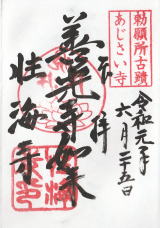 勅願所古蹟
あじさい寺
令和元年
六月二十五日
奉拝
善光寺如来
性海寺